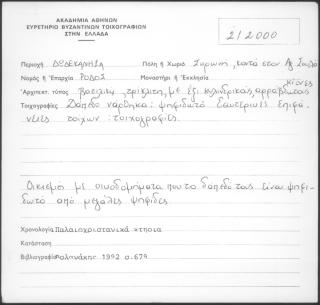 ΑΚΑΔΗΜΙΑ ΑΘΗΝΩΝ
ΕΥΡΕΤΗΡΙΟ ΒΥΖΑΝΤΙΝΩΝ ΤΟΙΧΟΓΡΑΦΙΩΝ
ΣΤΗΝ ΕΛΛΑΔΑ
212000
Περιοχή ΔΩΔΕΚΑΝΗΣΑ Πόλη ή Χωριό κοντά στον Αγ.
Νομός ή Επαρχία ΡΟΔΟΣ Μοναστήρι ή Εκκλησία
κίονες
Αρχιτεκτ. τύπος Βασιλική τρίκλιτη, με έξι κυλινδρικούς, αρράβδωτους
Τοιχογραφίες Δάπεδο νάρθηκα: ψηφιδωτό Εσωτερικές επιφά
νειες τοίχων: τοιχογραφίες.
Οικισμός με οικοδομήματα που το δαπεδό τους είναι ψηφι
δωτό από μεγάλες ψηφίδες.
Χρονολογία Παλαιοχριστιανικά
Κατάσταση
Βιβλιογραφία 1992 σ.679